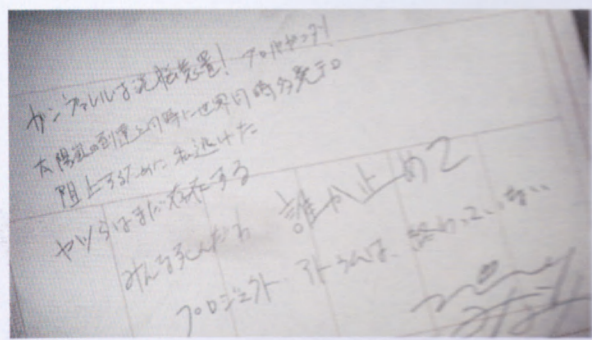 カンファレルは洗脳装置! プロパガンダ!
太陽嵐の到来と同時に世界同時多発テロ
阻止するために私逃げた
ヤツらはまだ存在する
みんな死んだわ 誰か止めて
プロジェクト アトラムは、終わっていない